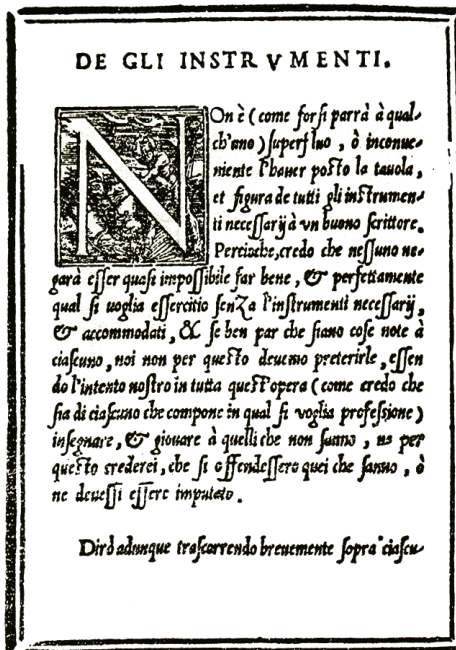 DE GLI INSTRVMENTI.
NOn è (come forsi parrà à qual-
ch'uno) superfluo, ò inconue-
niente l'hauer posto la tauola,
et figura de tutti gli instrumen-
ti necessarij à vn buono scrittore.
Percioche, credo che nessuno ne-
garà esser quasi impossibile far bene, & perfettamente
qual si uoglia essercitio senza l'instrumenti necessarij,
& accommodati, & se ben par che siano cose note à
ciascuno, noi non per questo deuemo preterirle, essen
do l'intento nostro in tutta quest'opera (come credo che
sia di ciascuno che compone in qual si voglia professione)
insegnare, & giouare à quelli che non sanno, ne per
questo crederei, che si offendessero quei che sanno, ò
ne deuessi essere imputato.
Dirò adunque trascorrendo breuemente sopra ciascu-